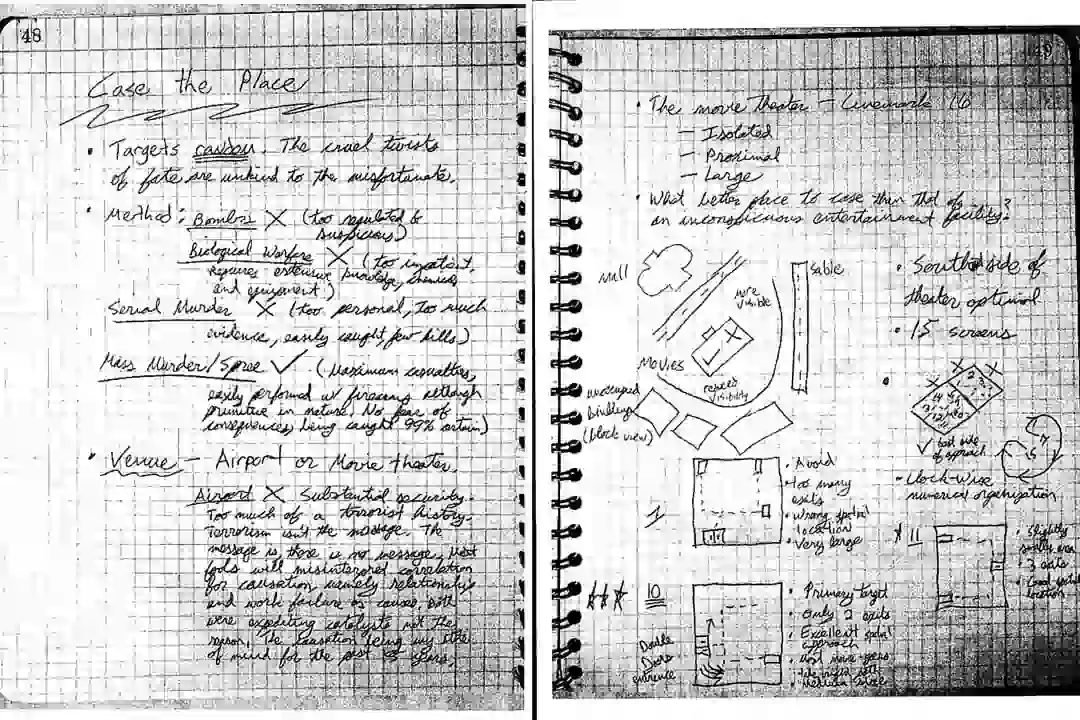 48
Case the Place
• Targets random. The cruel twists
of fate are unkind to the misfortunate.
• Method: Bombs X (too regulated &
suspicious)
Biological Warfare X (too impatient,
requires extensive knowledge, chemicals
and equipment)
Serial Murder X (too personal, too much
evidence, easily caught, few kills)
Mass Murder/Spree ✓ (Maximum casualties,
easily performed w/ firearms although
primitive in nature. No fear of
consequences, being caught 99% certain)
• Venue – Airport or Movie theater.
Airport X Substantial security.
Too much of a terrorist history.
Terrorism isn't the message. The
message is, there is no message. Most
fools will misinterpret correlation
for causation, namely relationship
and work failure as causes. Both
were expediting catalysts not the
reason. The causation being my state
of mind for the past years.
• The movie theater – Cinemark 16
– Isolated
– Proximal
– Large
• What better place to case than that of
an inconspicuous entertainment facility?
Mall
more
visible
Sable
X
✓
Movies
reduced
visibility
unoccupied
buildings
(block view)
• South side of
theater optimal
• 15 screens
X
X
✓ best side
of approach
• clock-wise
numerical organization
1
• Avoid
• too many
exits
• wrong
location
• Very large
* 11
• Slightly
smaller area
• 3 exits
• Good
location
10
Double
Doors
entrance
• Primary target
Only 2 exits
• Excellent
approach